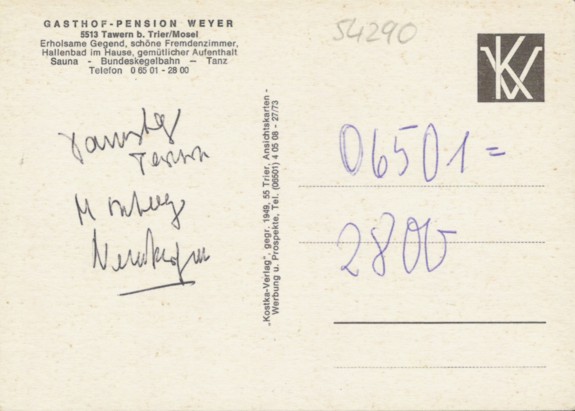 GASTHOF-PENSION WEYER
5513 Tawern b. Trier/Mosel
Erholsame Gegend, schöne Fremdenzimmer,
Hallenbad im Hause, gemütlicher Aufenthalt
Sauna - Bundeskegelbahn - Tanz
Telefon 0 65 01 - 28 00
54290
„Kostka-Verlag", gegr. 1949, 55 Trier, Ansichtskarten -
Werbung u. Prospekte, Tel. (06501) 4 05 08 - 27/73
06501 =
2800